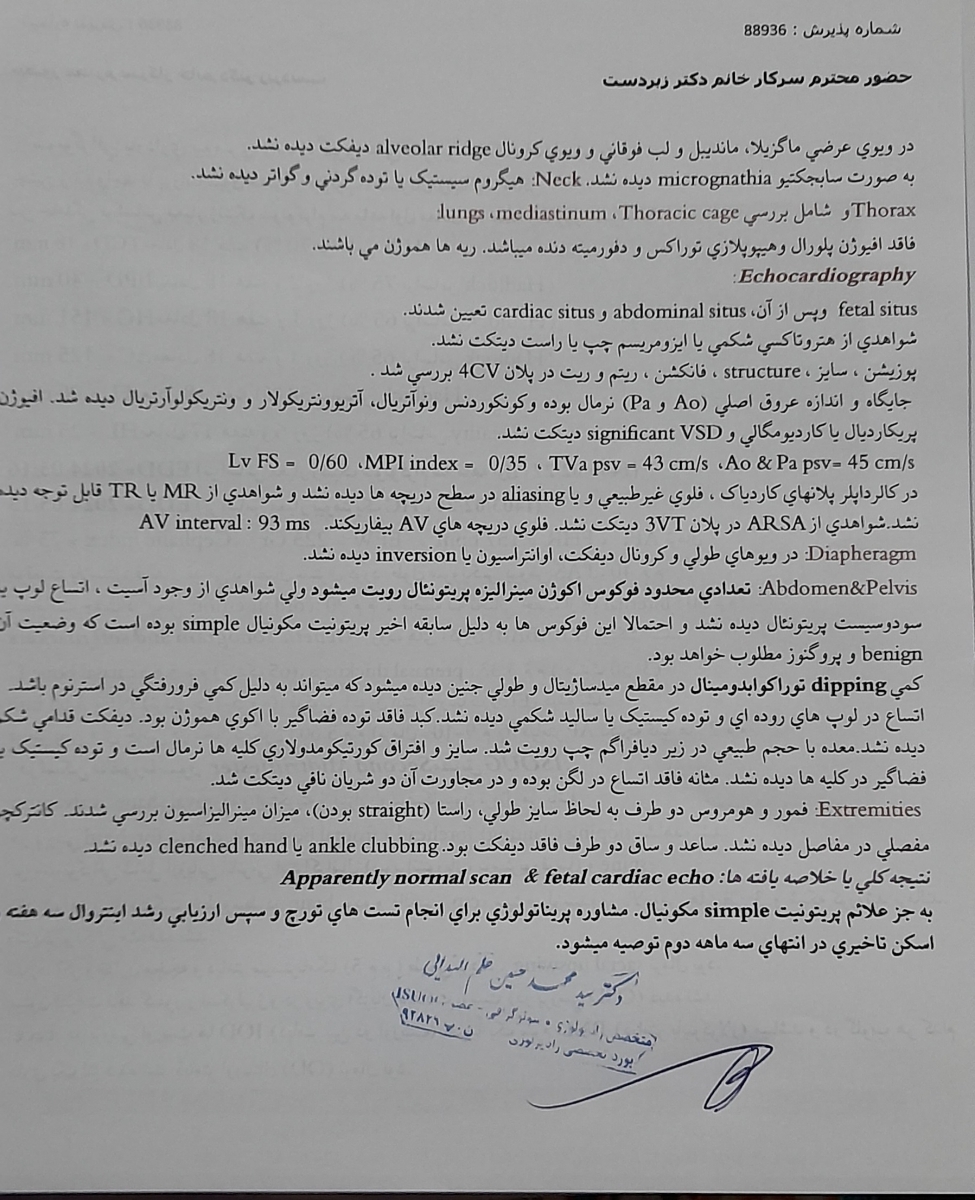 شماره پذیرش : 88936
حضور محترم سرکار خانم دکتر زبردست
در ویوي عرضي ماگزیلا، ماندیبل و لب فوقاني و ویوي کرونال alveolar ridge دیفکت دیده نشد.
به صورت سابجکتیو micrognathia دیده نشد. Neck: هیگروم سیستیک یا توده گردني و گواتر دیده نشد.
Thorax و شامل بررسي Thoracic cage، mediastinum، lungs:
فاقد افیوژن پلورال وهیپوپلازي توراکس و دفورمیته دنده میباشد. ریه ها هموژن مي باشند.
Echocardiography:
fetal situs وپس از آن، abdominal situs و cardiac situs تعیین شدند.
شواهدي از هتروتاکسي شکمي یا ایزومریسم چپ یا راست دیتکت نشد.
پوزیشن ، سایز ، structure ، فانکشن ، ریتم و ریت در پلان 4CV بررسي شد .
جایگاه و اندازه عروق اصلي (Ao و Pa) نرمال بوده وکونکوردنس ونوآتریال، آتریوونتریکولار و ونتریکولوآرتریال دیده شد. افیوژن
پریکاردیال یا کاردیومگالي و significant VSD دیتکت نشد.
Lv FS = 0/60 ،MPI index = 0/35 ، TVa psv = 43 cm/s ،Ao & Pa psv= 45 cm/s
در کالرداپلر پلانهاي کاردیاک ، فلوي غیرطبیعي و یا aliasing در سطح دریچه ها دیده نشد و شواهدي از MR یا TR قابل توجه دیده
نشد.شواهدي از ARSA در پلان 3VT دیتکت نشد. فلوي دریچه هاي AV بیفاریکند. AV interval : 93 ms
Diapheragm: در ویوهاي طولي و کرونال دیفکت، اوانتراسیون یا inversion دیده نشد.
Abdomen&Pelvis: تعدادي محدود فوکوس اکوژن مینرالیزه پریتونئال رویت میشود ولي شواهدي از وجود آسیت ، اتساع لوپ
سودوسیست پریتونئال دیده نشد و احتمالا این فوکوس ها به دلیل سابقه اخیر پریتونیت مکونیال simple بوده است که وضعیت آن
benign و پروگنوز مطلوب خواهد بود.
کمي dipping توراکوابدومینال در مقطع میدساژیتال و طولي جنین دیده میشود که میتواند به دلیل کمي فرورفتگي در استرنوم باشد.
اتساع در لوپ هاي روده اي و توده کیستیک یا سالید شکمي دیده نشد.کبد فاقد توده فضاگیر با اکوي هموژن بود. دیفکت قدامي
دیده نشد.معده با حجم طبیعي در زیر دیافراگم چپ رویت شد. سایز و افتراق کورتیکومدولاري کلیه ها نرمال است و توده کیستیک
فضاگیر در کلیه ها دیده نشد. مثانه فاقد اتساع در لگن بوده و در مجاورت آن دو شریان نافي دیتکت شد.
Extremities: فمور و هومروس دو طرف به لحاظ سایز طولي، راستا (straight بودن)، میزان مینرالیزاسیون بررسي شدند.
مفصلي در مفاصل دیده نشد. ساعد و ساق دو طرف فاقد دیفکت بود. ankle clubbing یا clenched hand دیده نشد.
نتیجه کلي یا خلاصه یافته ها: Apparently normal scan & fetal cardiac echo
به جز علائم پریتونیت simple مکونیال. مشاوره پریناتولوژي براي انجام تست هاي تورچ و سپس ارزیابي رشد اینتروال سه هفته
اسکن تاخیري در انتهاي سه ماهه دوم توصیه میشود.
دکتر سید محمد حسین
متخصص رادیولوژی و سونوگرافی - عضو ISUOG
بورد تخصصی رادیولوژی